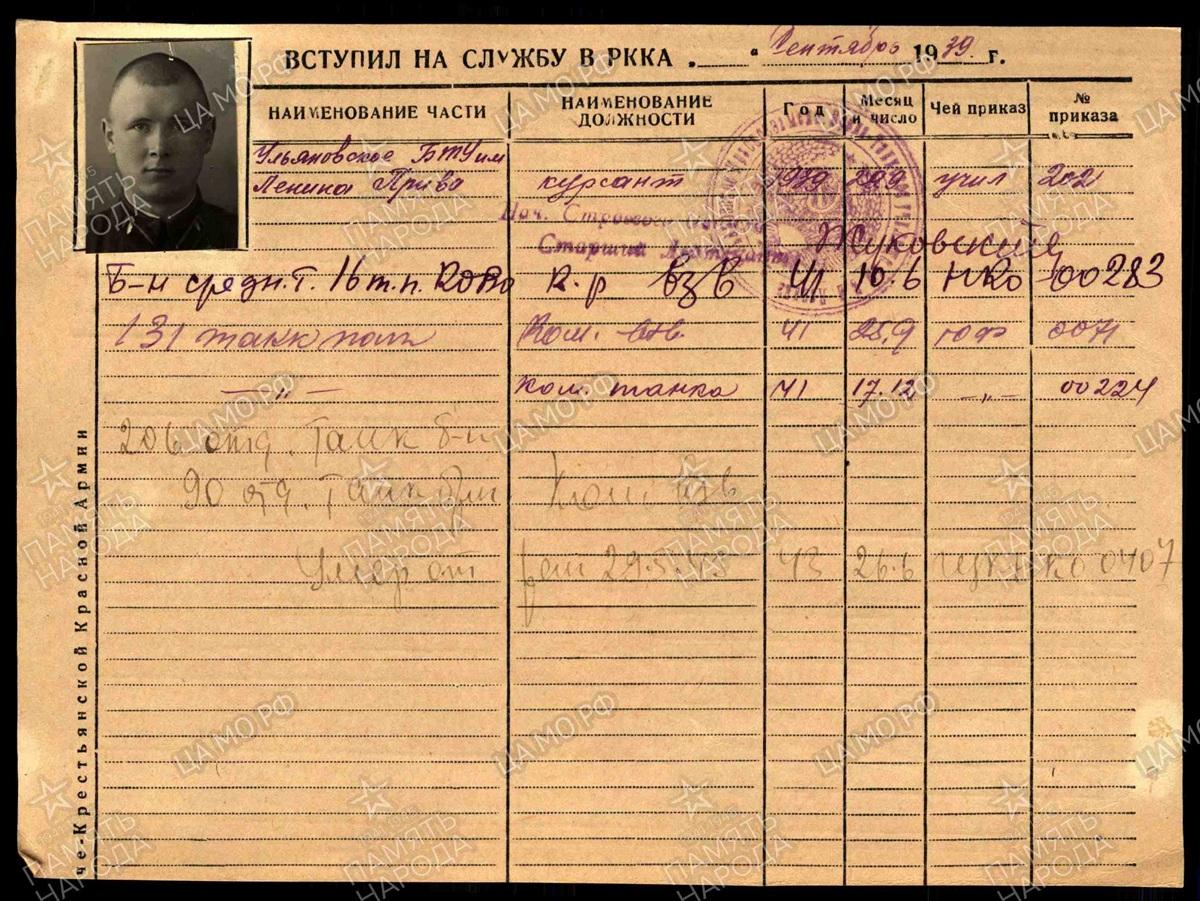 ВСТУПИЛ НА СЛУЖБУ В РККА „ " Сентябрь 1939 г.
НАИМЕНОВАНИЕ ЧАСТИ НАИМЕНОВАНИЕ ДОЛЖНОСТИ Год Месяц и число Чей приказ № приказа
Ульяновское БТУ им
Ленина Приво курсант 1939 учил 202
Нач. Строевого
Старший Жуковский
Б-н средн. т. 16 т.п. КОВО К-р взв 41 10.6 НКО 00283
131 танк полк Ком. взв. 41 25.9 ЮФ 0071
— „ — Ком. танка 41 17.12 — „ — 00224
206 отд. Танк б-н
90 отд. Танк Ком взв
Умер от ран 29.5.43 43 26.6 0407
че-Крестьянской Красной Армии
ЦАМО.РФ
ПАМЯТЬ НАРОДА